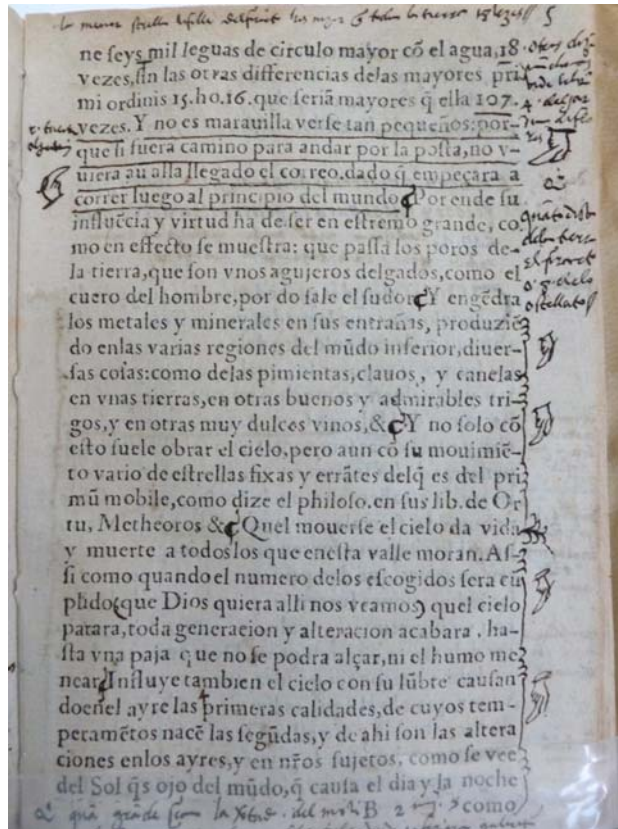 la menor strella
ne seys mil leguas de circulo mayor cõ el agua, 18
vezes, sin las otras differencias delas mayores pri
mi ordinis 15.ho.16.que seriã mayores q̃ ella 107.
vezes. Y no es marauilla verse tan pequeños: por-
que si fuera camino para andar por la posta, no v-
uiera au alla llegado el correo. dado q̃ empeçara a
correr luego al principio del mundo Por ende su
influẽcia y virtud ha de ser en estremo grande, co
mo en effecto se muestra: que passa los poros de-
la tierra, que son vnos agujeros delgados, como el
cuero del hombre, por do sale el sudor Y engẽdra
los metales y minerales en sus entrañas, produziẽ
do enlas varias regiones del mũdo inferior, diuer-
sas cosas: como delas pimientas, clauos, y canelas
en vnas tierras, en otras buenos y admirables tri-
gos, y en otras muy dulces vinos, & Y no solo cõ
esto suele obrar el cielo, pero aun cõ su mouimiẽ-
to vario de estrellas fixas y errãtes delq̃ es del pri
mũ mobile, como dize el philoso. en sus lib. de Or
tu, Metheoros & Quel mouerse el cielo da vida
y muerte a todos los que enesta valle moran. As-
si como quando el numero delos escogidos sera cũ
plido (que Dios quiera alli nos veamos) quel cielo
parara, toda generacion y alteracion acabara, ha-
sta vna paja que no se podra alçar, ni el humo me
near Influye tambien el cielo con su lũbre causan
do enel ayre las primeras calidades, de cuyos tem-
peramẽtos nacẽ las segũdas, y de ahi son las altera
ciones enlos ayres, y en nr̃os sujetos, como se vee
del Sol q̃s ojo del mũdo, q̃ causa el dia y la noche
como